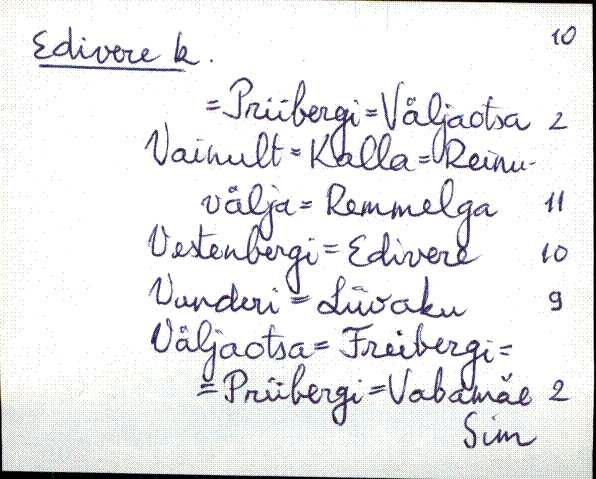 Edivere k. 10
=Priibergi=Väljaotsa 2
Vainult=Kalla=Reinu-
välja=Remmelga 11
Vestenbergi=Edivere 10
Vunderi=Liivaku 9
Väljaotsa=Freibergi=
=Priibergi=Vabamäe 2
Sim